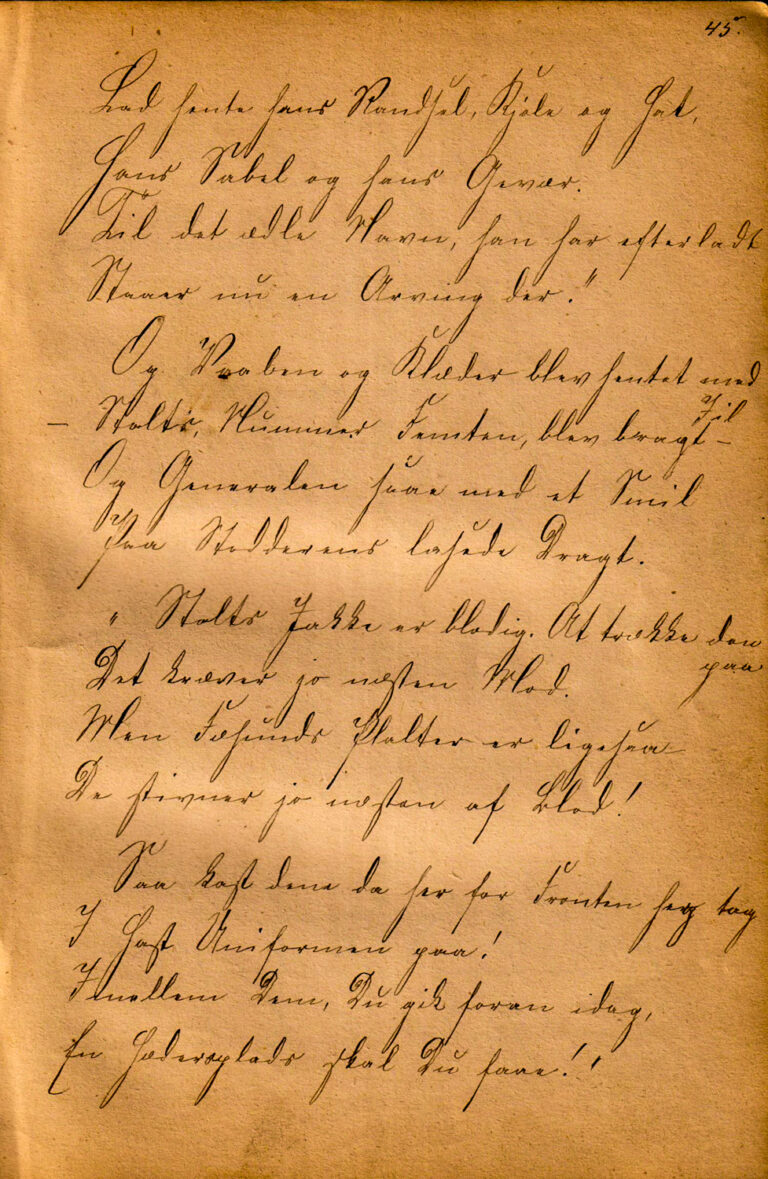 45.
Lad hente hans Randsel, Kjole og Hat,
Hans Sabel og hans Gevær.
Til det ædle Navn, han har efterladt
Staaer nu en Arving der."
Og Vaaben og Klæder blev hentet med Iil
– Stolts, Nummer Femten, blev bragt –
Og Generalen saae med et Smil
Paa Stodderens lasede Dragt.
" Stolts Jakke er blodig. At trække den paa
Det kræver jo næsten Mod.
Men Fæhunds Pjalter er ligesaa
De stivner jo næsten af Blod!
Saa kast dene da her for Fronten tag
I Hast Uniformen paa!
Imellem Dem, Du gik foran idag,
En Hædersplads skal Du faae!"